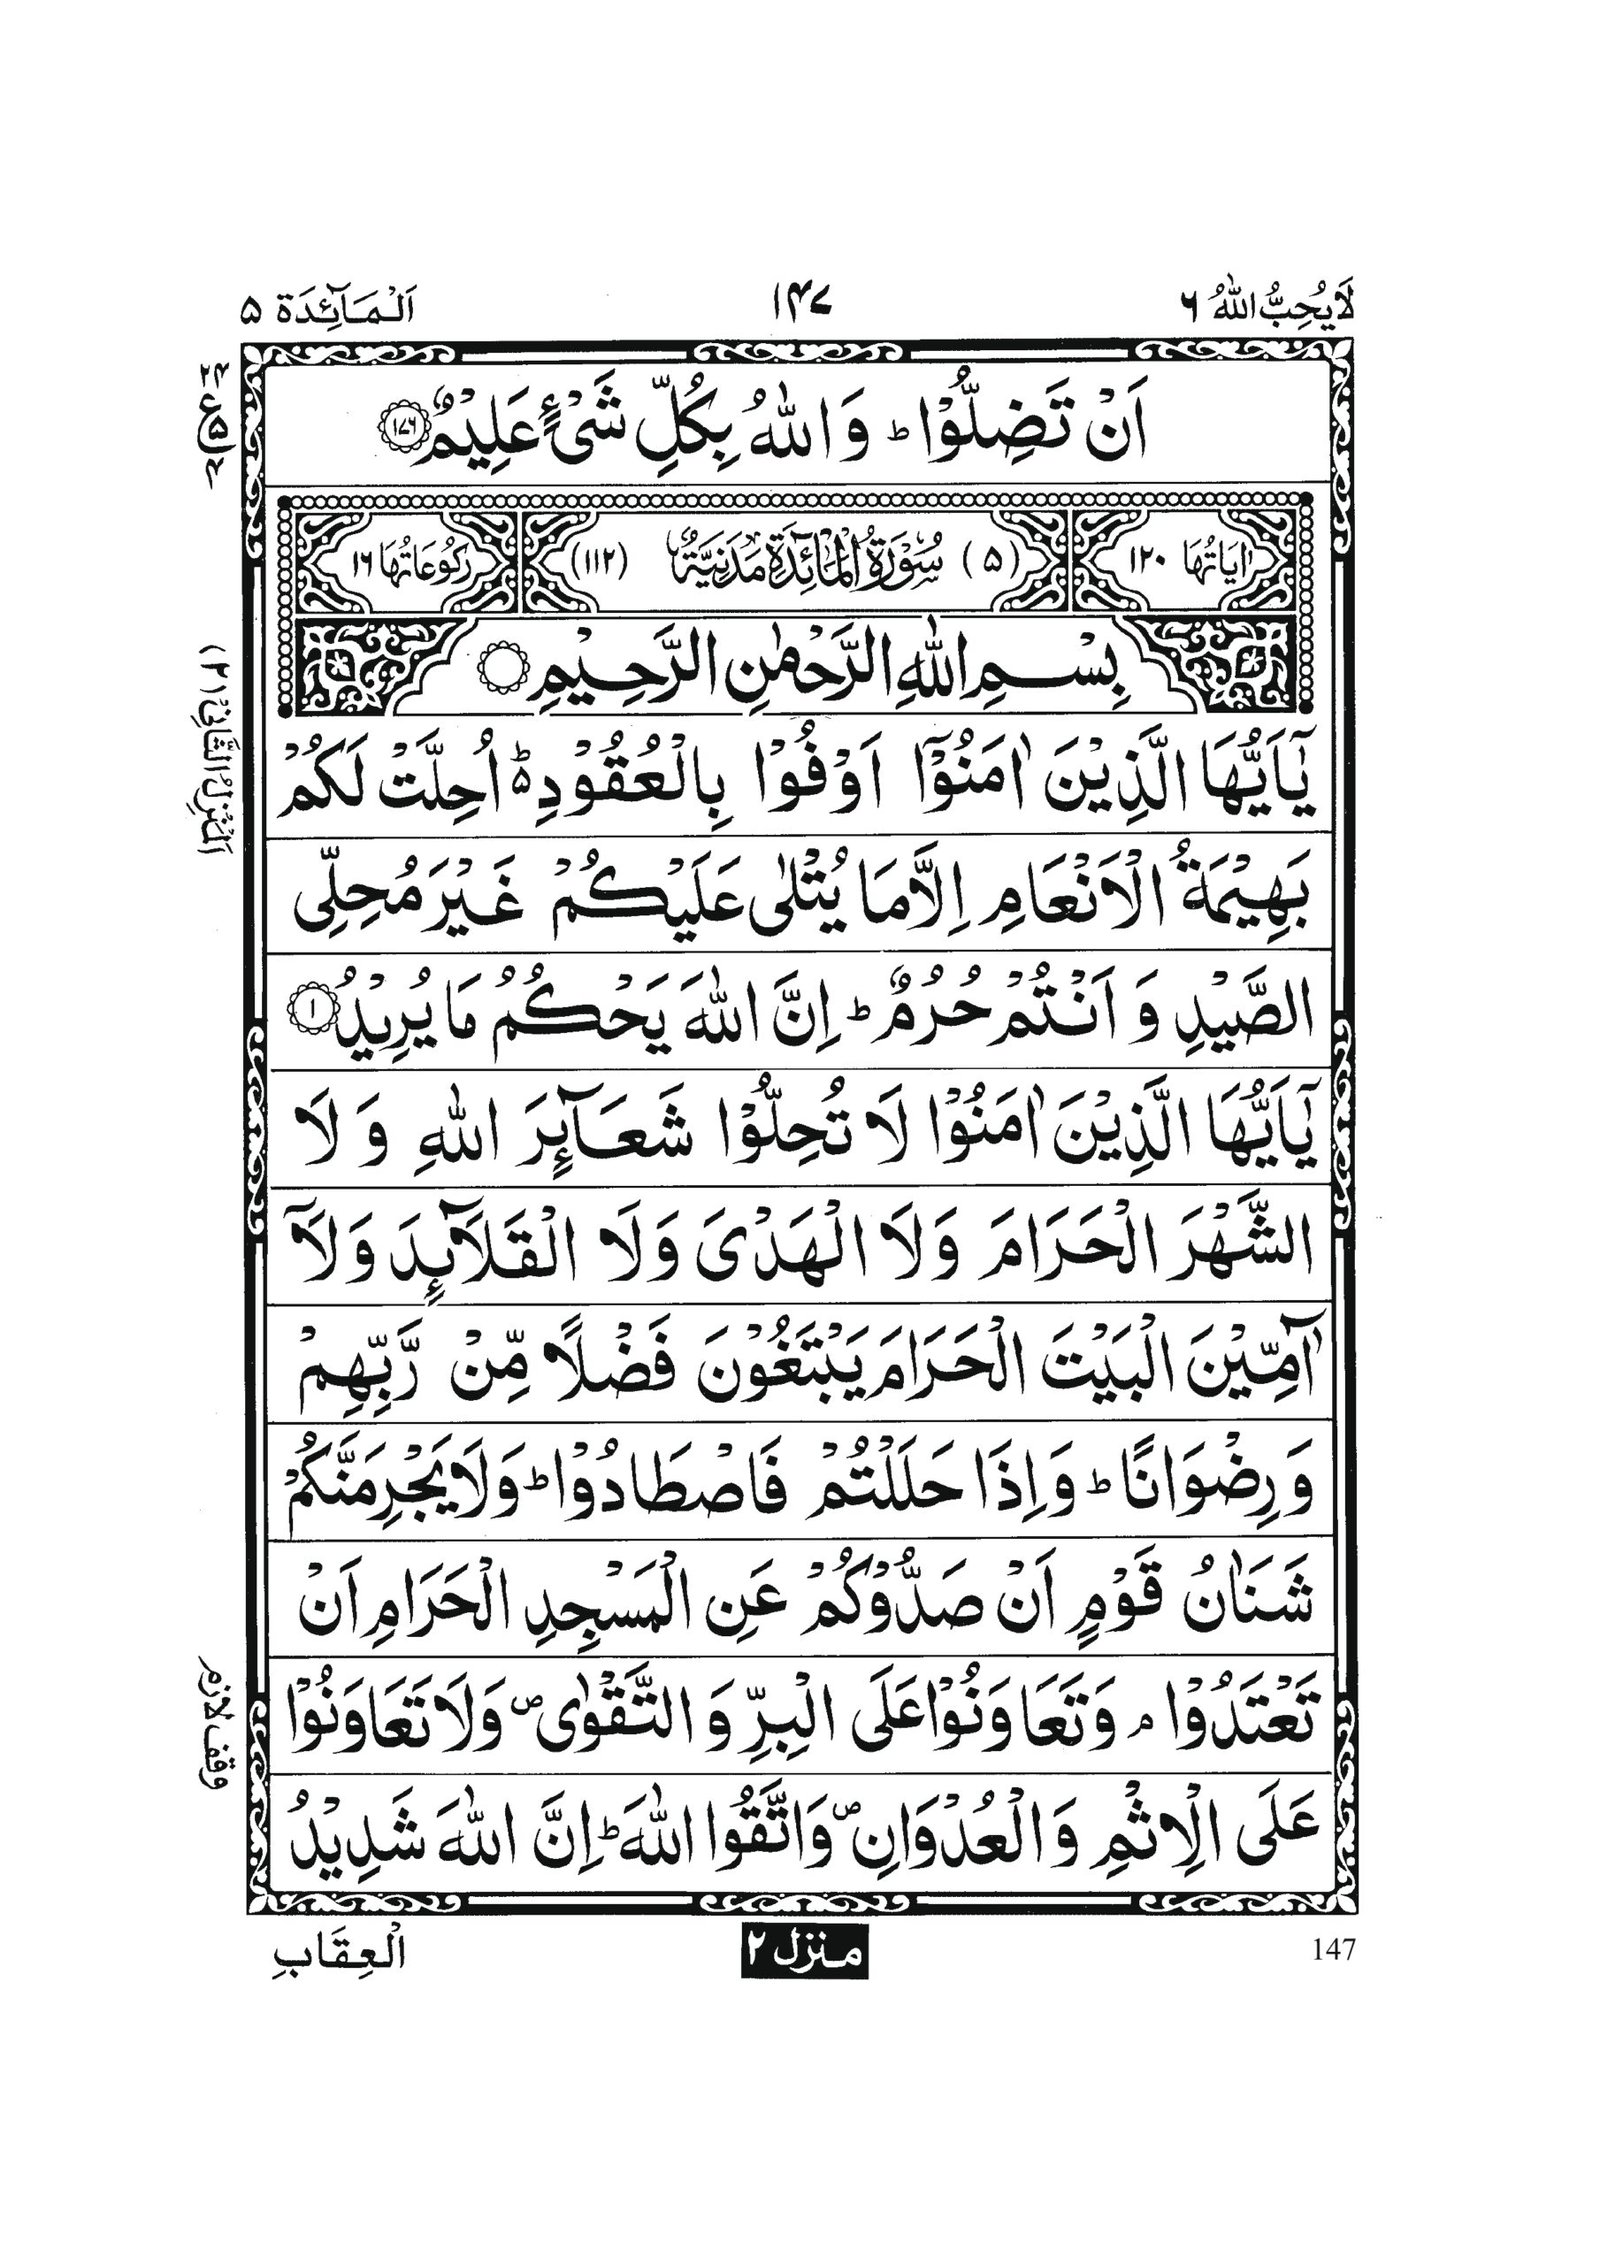 لَايُحِبُّ اللّٰهُ ۶
۱۴۷
اَلْمَآئِدَة ۵
اَنْ تَضِلُّوْا ؕ وَ اللّٰهُ بِكُلِّ شَیْءٍ عَلِیْمٌ ۱۷۶
اٰیَاتُهَا ۱۲۰
(۵) سُوْرَةُ الْمَآئِدَةِ مَدَنِیَّةٌ (۱۱۲)
رُكُوْعَاتُهَا ۱۶
بِسْمِ اللّٰهِ الرَّحْمٰنِ الرَّحِیْمِ
یٰۤاَیُّهَا الَّذِیْنَ اٰمَنُوْۤا اَوْفُوْا بِالْعُقُوْدِ ؕ۵ اُحِلَّتْ لَكُمْ
بَهِیْمَةُ الْاَنْعَامِ اِلَّا مَا یُتْلٰی عَلَیْكُمْ غَیْرَ مُحِلِّی
الصَّیْدِ وَ اَنْتُمْ حُرُمٌ ؕ اِنَّ اللّٰهَ یَحْكُمُ مَا یُرِیْدُ ۱
یٰۤاَیُّهَا الَّذِیْنَ اٰمَنُوْا لَا تُحِلُّوْا شَعَآئِرَ اللّٰهِ وَ لَا
الشَّهْرَ الْحَرَامَ وَلَا الْهَدْیَ وَلَا الْقَلَآئِدَ وَلَاۤ
آٰمِّیْنَ الْبَیْتَ الْحَرَامَ یَبْتَغُوْنَ فَضْلًا مِّنْ رَّبِّهِمْ
وَ رِضْوَانًا ؕ وَ اِذَا حَلَلْتُمْ فَاصْطَادُوْا ؕ وَلَا یَجْرِمَنَّكُمْ
شَنَاٰنُ قَوْمٍ اَنْ صَدُّوْكُمْ عَنِ الْمَسْجِدِ الْحَرَامِ اَنْ
تَعْتَدُوْا ۘ وَ تَعَاوَنُوْا عَلَی الْبِرِّ وَ التَّقْوٰی ۪ وَلَا تَعَاوَنُوْا
عَلَی الْاِثْمِ وَ الْعُدْوَانِ ۪ وَاتَّقُوا اللّٰهَ ؕ اِنَّ اللّٰهَ شَدِیْدُ
اَلْمَنْزِلُ الثَّانِیْ (۲)
وقف لازم
147
منزل ۲
الْعِقَابِ